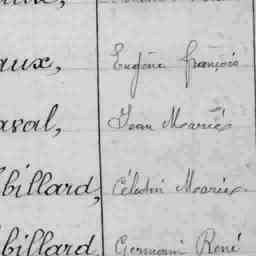 aux, Eugène françois
aval, Jean Marie
billard, Célestin Marie
billard, Germain René